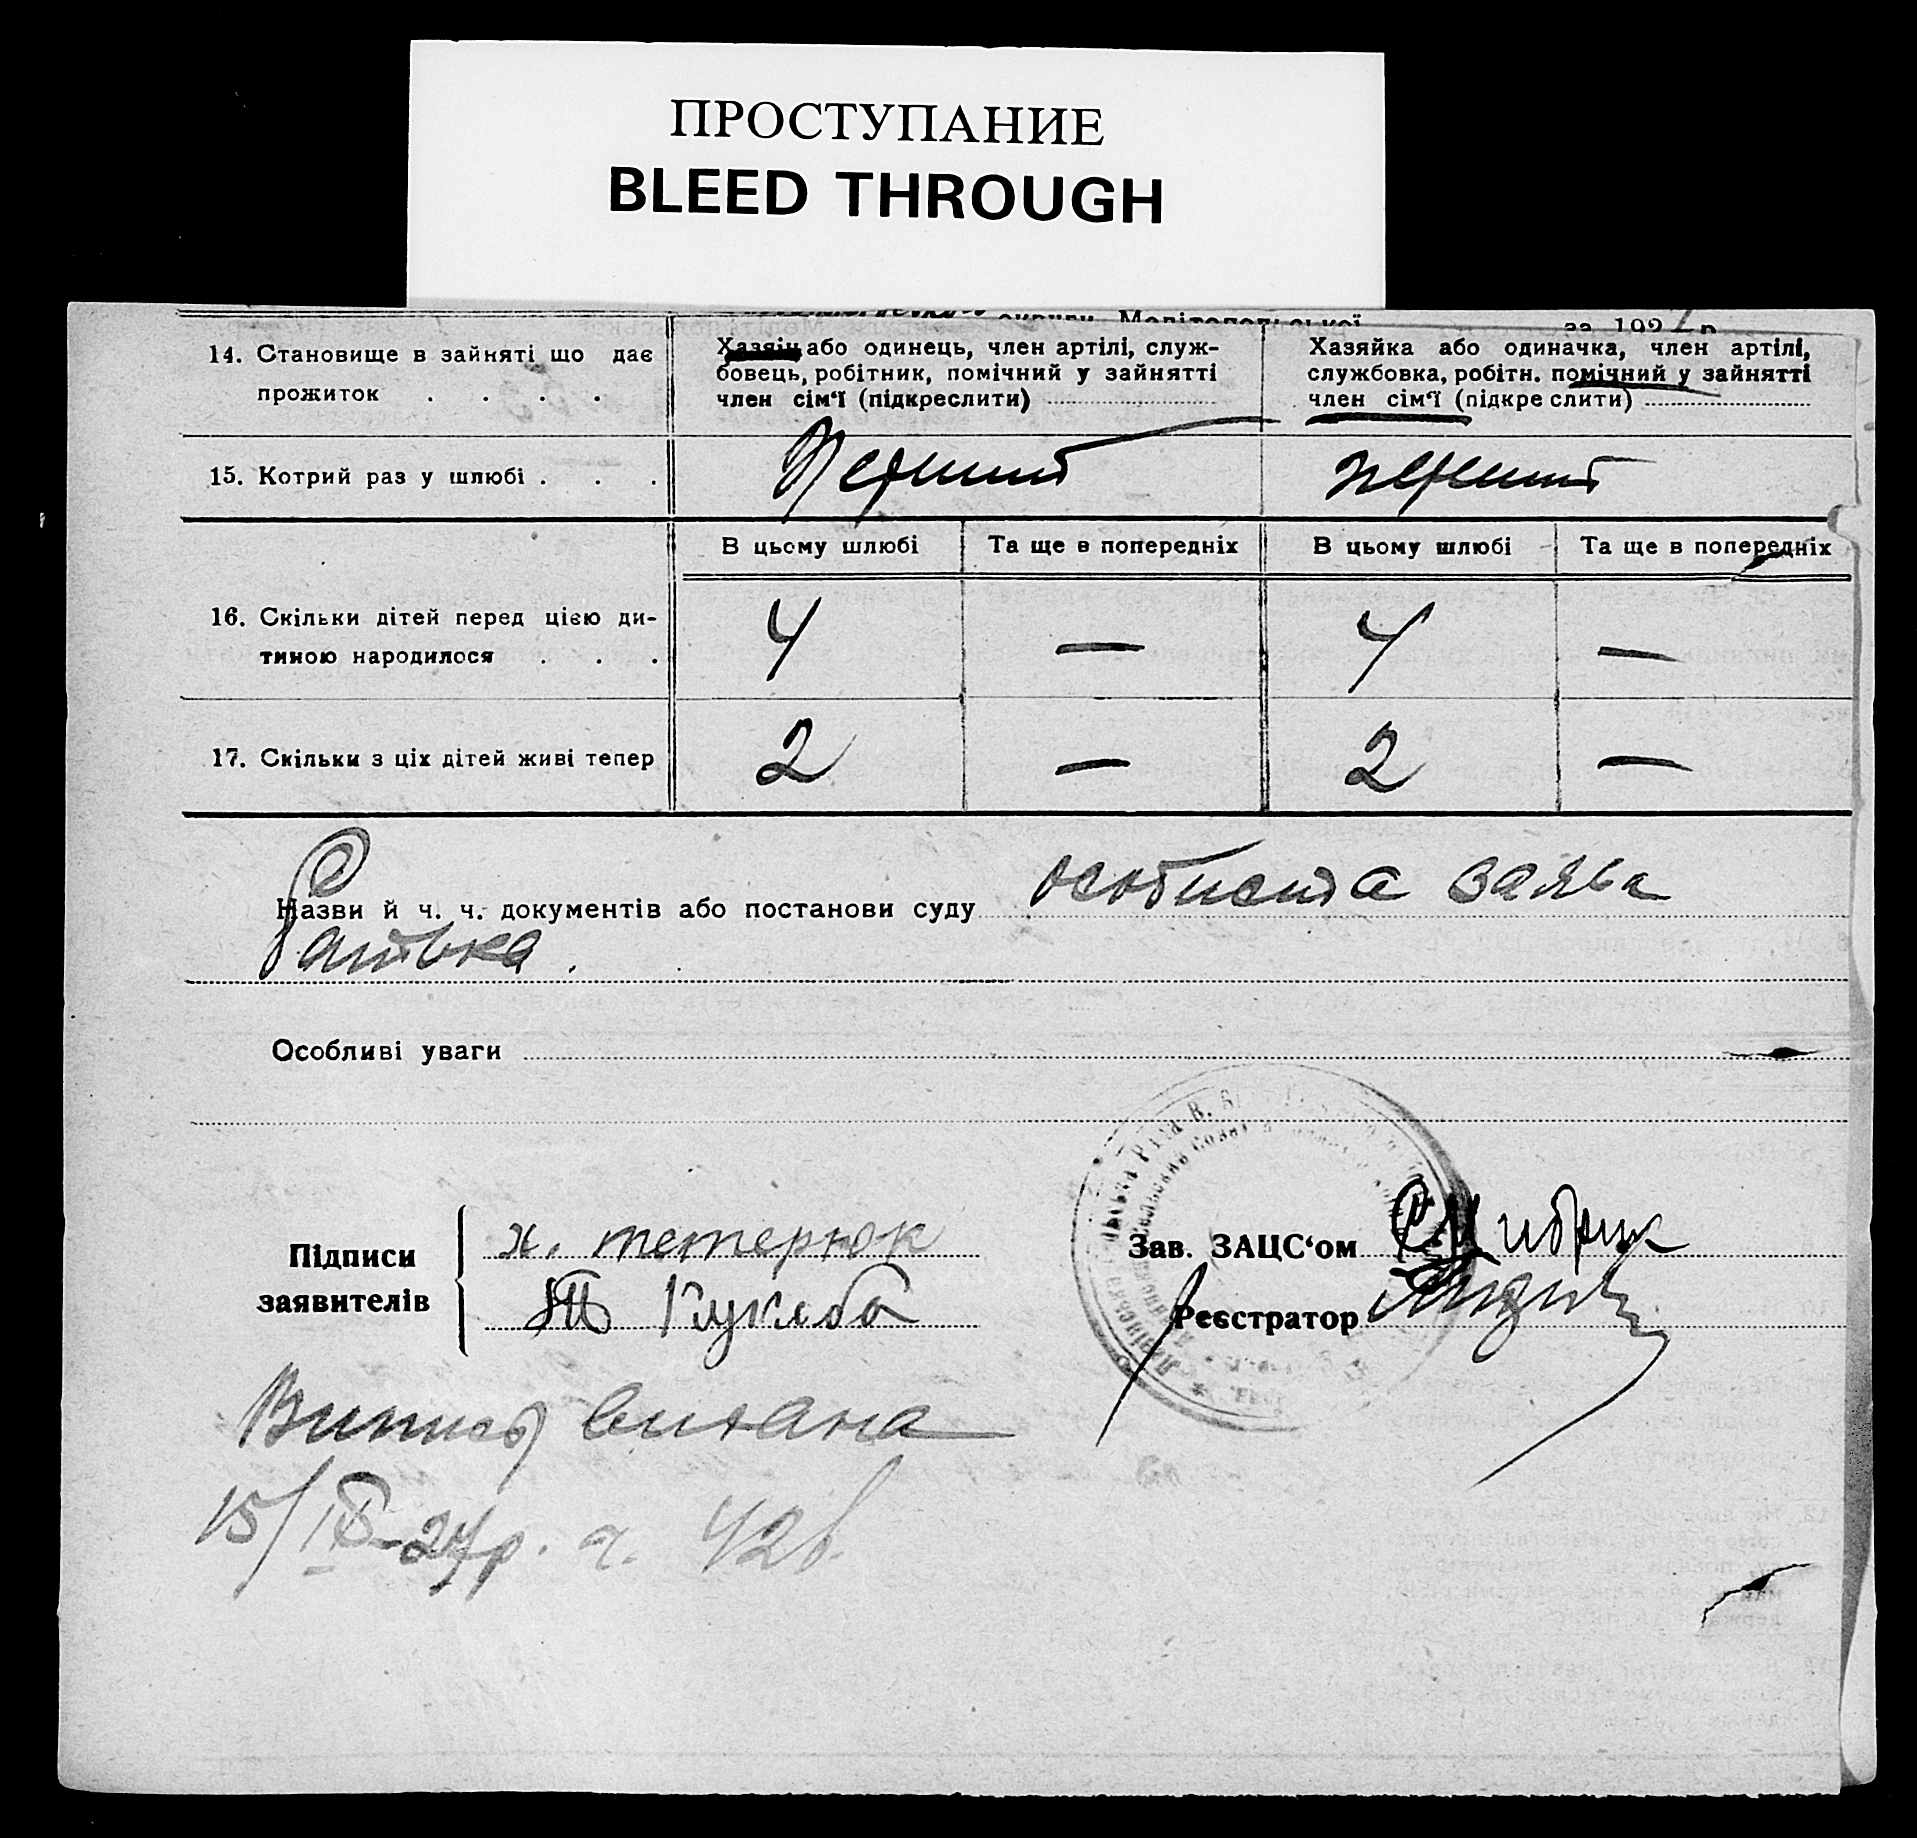 ПРОСТУПАНИЕ
BLEED THROUGH
округи Мелітопольської за 1927 р.
14. Становище в зайняті що дає прожиток . . . .
Хазяін або одинець, член артілі, служ-
бовець, робітник, помічний у зайнятті
член сім'ї (підкреслити)
Хазяйка або одиначка, член артілі,
службовка, робітн. помічний у зайнятті
член сім'ї (підкреслити)
15. Котрий раз у шлюбі . . .
Перший
перший
В цьому шлюбі
Та ще в попередніх
В цьому шлюбі
Та ще в попередніх
16. Скільки дітей перед цією ди-
тиною народилося . . .
4 — 4 —
17. Скільки з ціх дітей живі тепер
2 — 2 —
Назви й ч. ч. документів або постанови суду особиста заява
батька.
Особливі уваги
Підписи
заявителів
х. тетерюк
Кукиба
Зав. ЗАЦС'ом
Реєстратор
Випись видана
15/IX-27р. ч. 428.